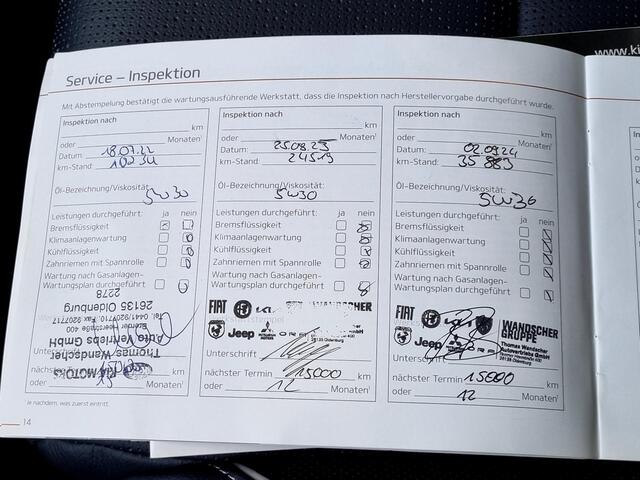 www.ki
Service – Inspektion
Mit Abstempelung bestätigt die wartungsausführende Werkstatt, dass die Inspektion nach Herstellervorgabe durchgeführt wurde.
Inspektion nach
km
oder Monaten¹
Datum: 18.07.22
km-Stand:
Öl-Bezeichnung/Viskosität:
5W30
Leistungen durchgeführt: ja nein
Bremsflüssigkeit
Klimaanlagenwartung
Kühlflüssigkeit
Zahnriemen mit Spannrolle
Wartung nach Gasanlagen-
Wartungsplan durchgeführt
Thomas Wandscher
Auto Vertriebs GmbH
Bremer Heerstraße 400
Tel. 0441/920710, Fax 9207717
26135 Oldenburg
2278
KIA MOTORS
Unterschrift
nächster Termin km
oder Monaten¹
Inspektion nach
km
oder Monaten¹
Datum: 25.08.23
km-Stand: 24519
Öl-Bezeichnung/Viskosität:
5W30
Leistungen durchgeführt: ja nein
Bremsflüssigkeit
Klimaanlagenwartung
Kühlflüssigkeit
Zahnriemen mit Spannrolle
Wartung nach Gasanlagen-
Wartungsplan durchgeführt
FIAT KIA WANDSCHER
Jeep
26135 Oldenburg
Unterschrift
nächster Termin 15000 km
oder 12 Monaten¹
Inspektion nach
km
oder Monaten¹
Datum: 02.09.24
km-Stand: 35883
Öl-Bezeichnung/Viskosität:
5W30
Leistungen durchgeführt: ja nein
Bremsflüssigkeit
Klimaanlagenwartung
Kühlflüssigkeit
Zahnriemen mit Spannrolle
Wartung nach Gasanlagen-
Wartungsplan durchgeführt
FIAT WANDSCHER
GRUPPE
Jeep Thomas Wandscher
Autovertriebs GmbH
26135 Oldenburg
Unterschrift
nächster Termin 15000 km
oder 12 Monaten¹
¹ Je nachdem, was zuerst eintrifft.
14